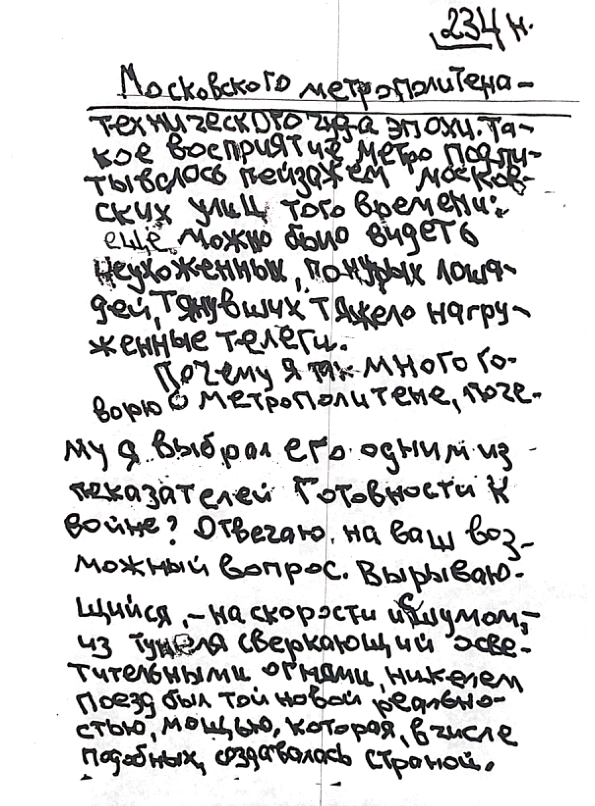 234 н.
Московского метрополитена –
технического чуда эпохи. Та-
кое восприятие метро подпи-
тывалось пейзажем москов-
ских улиц того времени:
ещё можно было видеть
неухоженных, понурых лоша-
дей, тянувших тяжело нагру-
женные телеги.
Почему я так много го-
ворю о метрополитене, поче-
му я выбрал его одним из
показателей готовности к
войне? Отвечаю на ваш воз-
можный вопрос. Вырываю-
щийся, – на скорости и с шумом, –
из тунеля сверкающий осве-
тительными огнями, никелем
поезд был той новой реально-
стью, мощью, которая, в числе
подобных, создавалась страной.